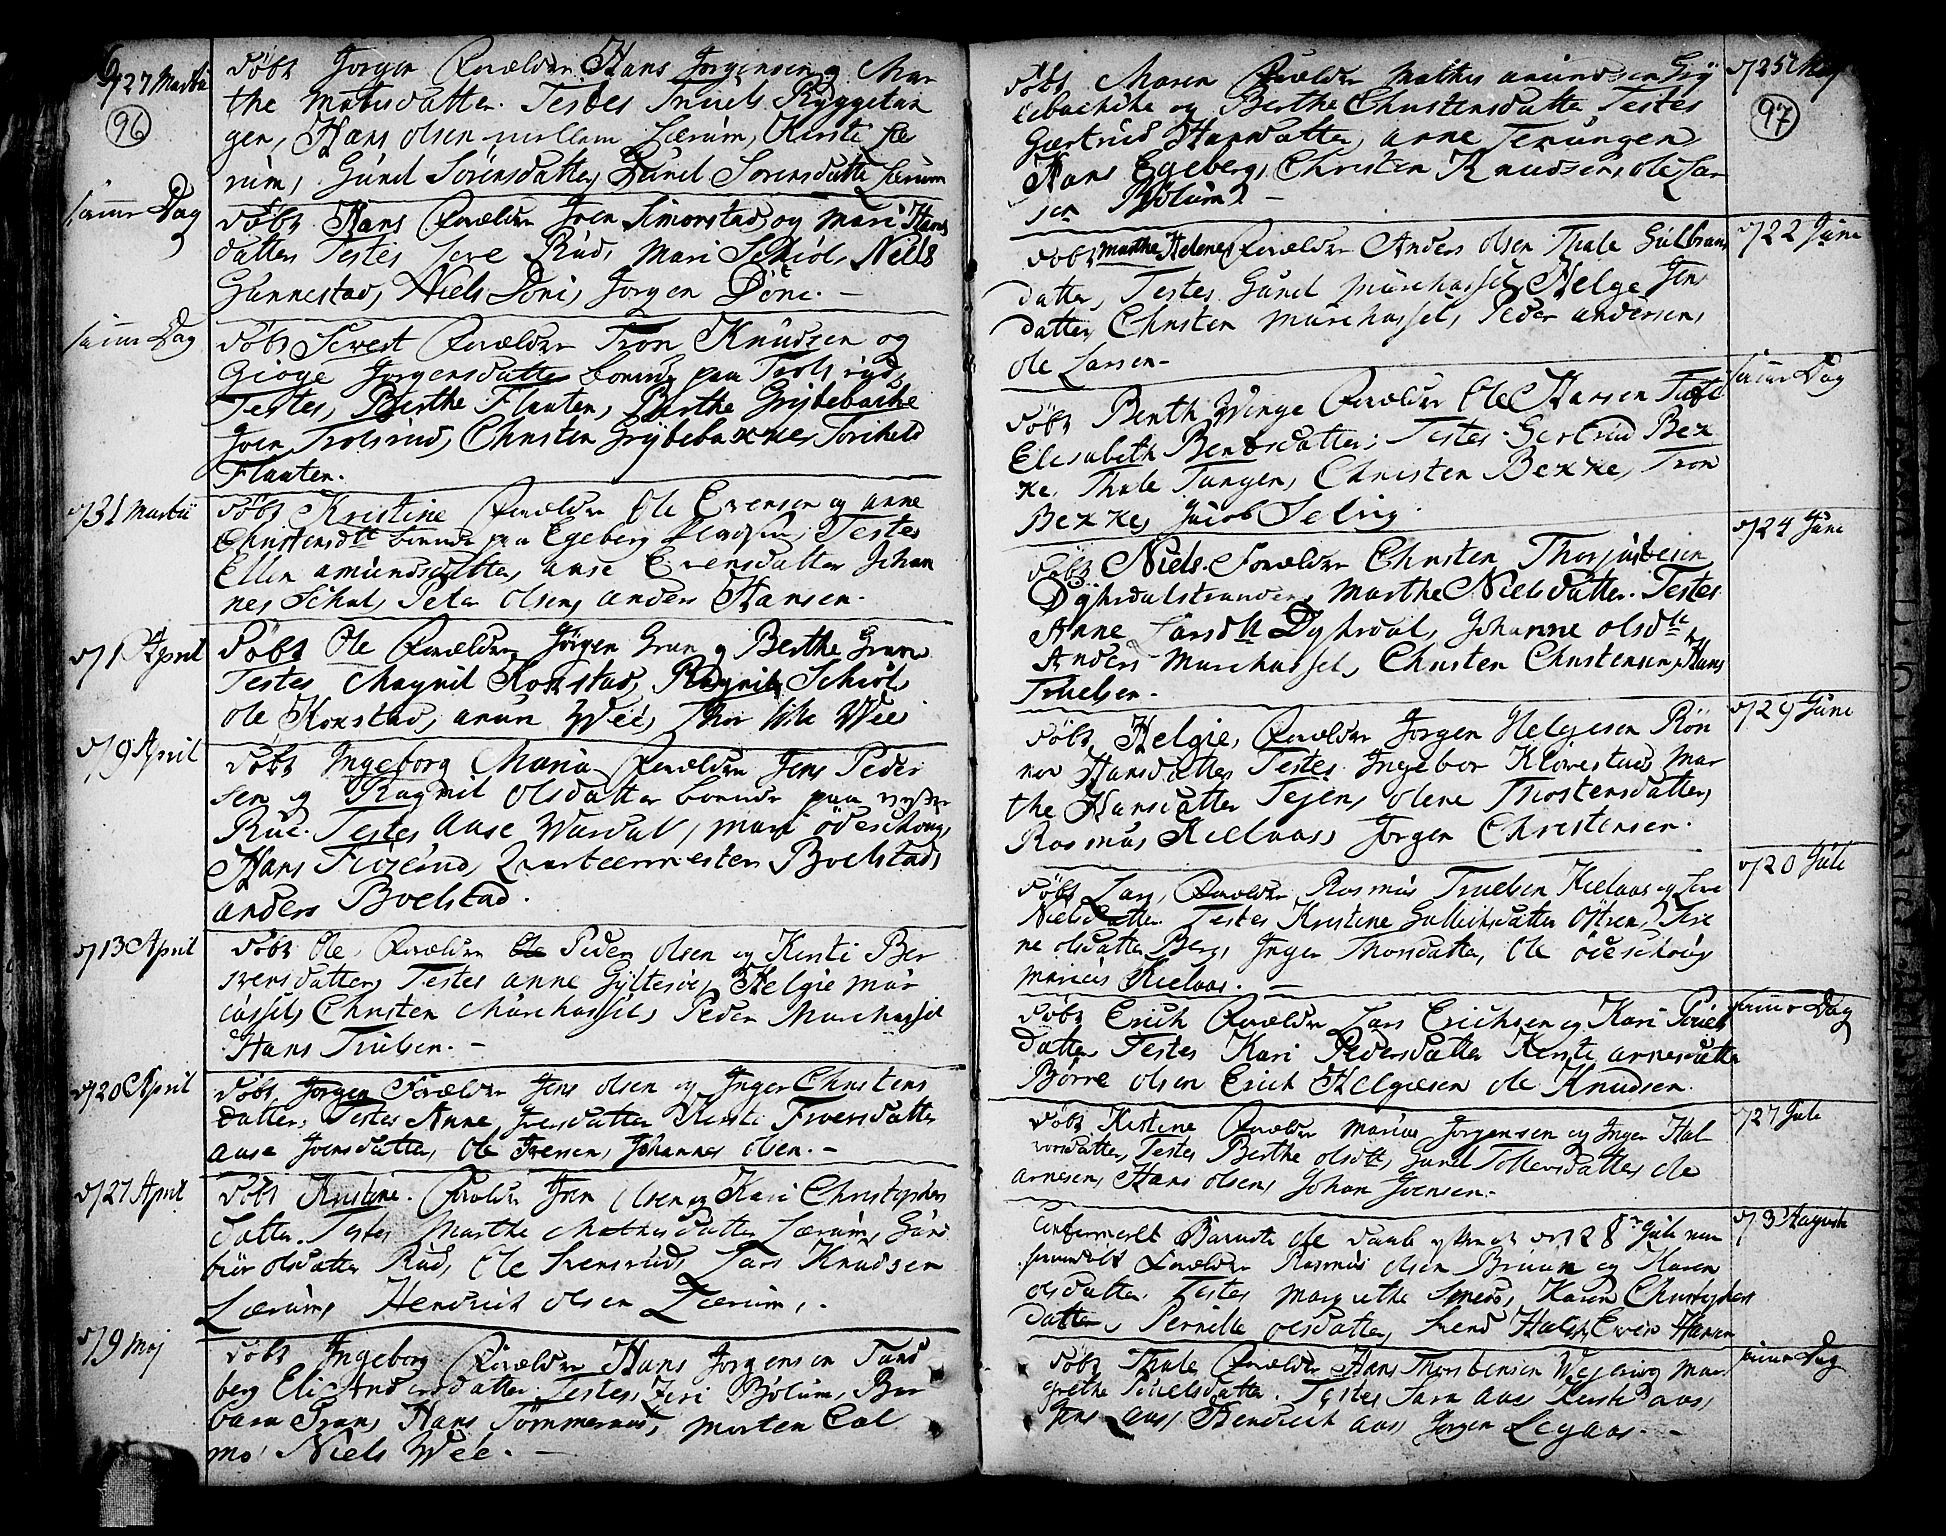 96
d 27 Martii
Døbt Jørgen Forældre Hans Jørgensen og Mar
the Matisdatter. Testes Truels Ryggetan
gen, Hans Olsen mellem Lærum, Kirsti Læ
rum, Gunil Sørensdatter, Gunil Sørensdatter Lærum
samme Dag
Døbt Hans Forældre Iver Simonstad og Mari Hans
datter Testes Iere Rud, Mari Schiøl, Niels
Gunnestad, Niels Døni, Jørgen Døne. -
samme Dag
Døbt Sevest Forældre Tron Knudsen og
Giøge Jørgensdatter boende paa Trolsrud,
Testes, Berthe Flaaten, Berthe Grytebacke
Joen Trolsrud, Christen Grytebakke, Torchild
Flaaten.
d 31 Martii
Døbt Kristine Forældre Ole Evensen og Anne
Christensdtr boende paa Egeberg Testes
Ellen Amundsdatter, Aase Evensdatter Johan
nes Schol, Peter Olsen, Anders Hansen.
d 1 April
Døbt Ole Forældre Jørgen Gran og Berthe Gran
Testes Magnil Kokstad, Ragnild Schiøl,
Ole Kokstad, Wee, Thor Wee
d 9 April
Døbt Ingeborg Maria Forældre Jens Peder
sen og Ragnil Olsdatter boende paa
Rue. Testes Aase Wardal, Mari Ødeschoug,
Hans Quarteermester Boelstad,
Anders Boelstad.
d 13 April
Døbt Ole, Forældre Ole Peder Olsen og Kirsti Ber
svensdatter, Testes Anne Gyltesøe, Helgie Mør
cassel, Christen Mørchassel, Peder Mørchassel
Hans Trulsen. -
d 20 April
Døbt, Jørgen Forældre Jens Olsen og Inger Christens
datter, Testes Anne Iversdatter Kirsti Iversdatter
Aase Joensdatter, Ole Iversen, Johannes Olsen. -
d 27 April
Døbt Kristine. Forældre Iver Olsen og Kari Christophers
datter. Testes Marthe Mathisdatter Lærum, Gun
biør Olsdatter Rud, Ole Svensrud, Lars Knudsen
Lærum, Hendrich Olsen Lærum, .
d 9 Maj
Døbt Ingeborg Forældre Hans Jørgensen Sand
berg Eli Andersdatter Testes, Zeri Bjølum, Bar
bara Prans, Hans Tømmeraas, Morten Cal
mo Niels Wee. -
97
d 25 Maj
Døbt Maren Forældre Mathis Amundsen Gry
tebackike og Berthe Christensdatter Testes
Giertrud Hansdatter, Anne Tenungen
Hans Egeberg, Christen Knudsen, Ole Lar
sen Bjølum. -
d 22 June
Døbt Marthe Helene Forældre Anders Olsen Thale Gulbrans
datter, Testes Gunil Mørchassel, Helge Jens
datter, Christen Mørchassel, Peder Andersen,
Ole Larsen.
samme Dag
Døbt Berth Winge Forældre Ole Hansen Tufte
Elisabeth Bendsdatter; Testes Giertrud Bex
ke, Thale Tangen, Christen Bekke, Tron
Bekke, Jacob Selvig.
d 24 June
Døbt Niels. Forældre Christen Thorjussen
Dyhrdalstranden, Marthe Nielsdatter. Testes
Anne Larsdtr Dyhrdal, Johanne Olsdtr
Anders Mørchassel, Christen Christensen, Hans
Truelsen.
d 29 June
Døbt, Helgie, Forældre Jørgen Helgiesen Røn
nov Hansdatter Testes Ingebor Klovestad Mar
the Hansdatter Tejen, Olene Thostensdatter,
Rasmus Kielaas, Jørgen Christensen.
d 20 Jule
Døbt Lars, Forældre Rasmus Truelsen Kielaas og Sere
Nielsdatter. Testes Kristine Gulliksdatter Østren, Sere
ne Olsdatter Berg, Inger Thorsdatter, Ole Ødeschoug
Marius Kielaas. -
samme Dag
Døbt Erich Forældre Lars Erichsen og Kari Pouels
datter Testes Kari Pedersdatter Kirsti Arnesdatter
Børre Olsen Erich Helgiesen Ole Knudsen.
d 27 Jule
Døbt Kistine Forældre Marius Jørgensen og Inger Hal
vorsdatter, Testes Berthe Olsdtr, Gunil Tollevsdatter, Ole
Arnesen, Hans Olsen, Johan Joensen.
d 3 Auguste
Confirmerit Barnets Daab d 28 Jule
forrettet Forældre Rasmus Olsen Bruun og Karen
Olsdatter. Testes Margrethe Smed, Karen Christophers
datter, Pernille Olsdatter, Svend Hals, Even Hansen
samme Dag
Døbt Thale Forældre Hans Thorstensen Wejbing Mar
grethe Pouelsdatter. Testes Sara Aas, Kirsti Aas,
Jens Aas, Hendrich Aas, Jørgen Legaas. -